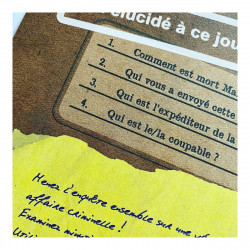 élucidé à ce jou
1. Comment est mort Ma
2. Qui vous a envoyé cette
3. Qui est l'expéditeur de la
4. Qui est le/la coupable ?
Menez l'enquête ensemble sur une
affaire criminelle !
Examinez